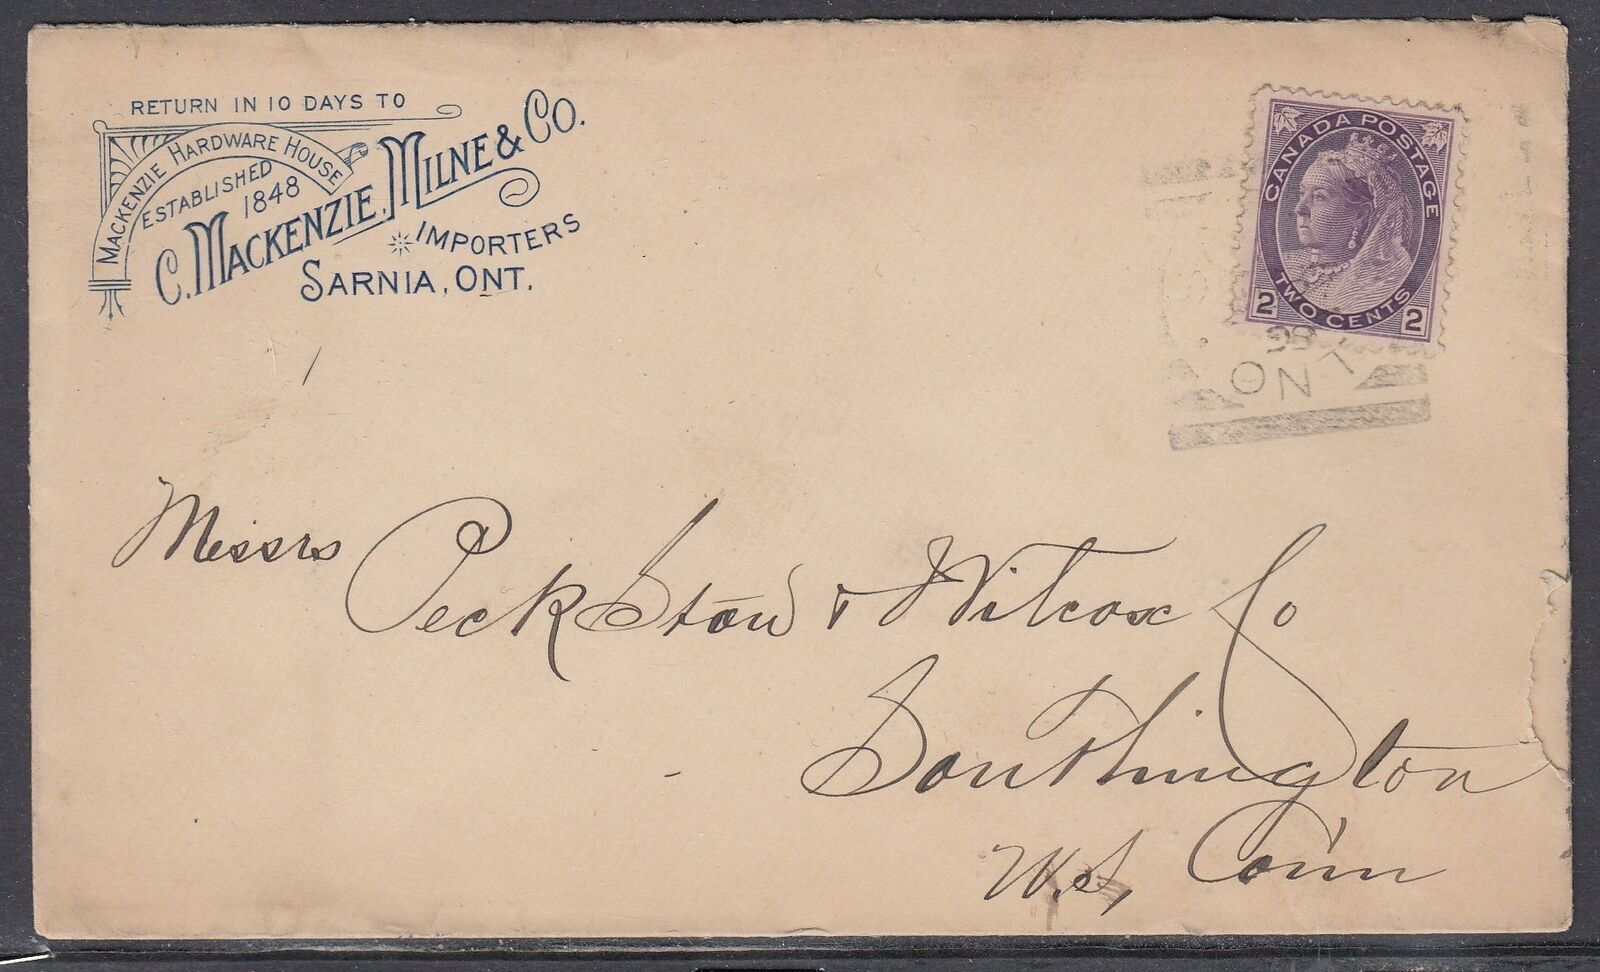 RETURN IN 10 DAYS TO
MACKENZIE HARDWARE HOUSE
ESTABLISHED
1848
C. MACKENZIE, MILNE & CO.
IMPORTERS
SARNIA, ONT.
CANADA POSTAGE
2 TWO CENTS 2
Messrs Peck Stow & Wilcox Co
Southington
Conn